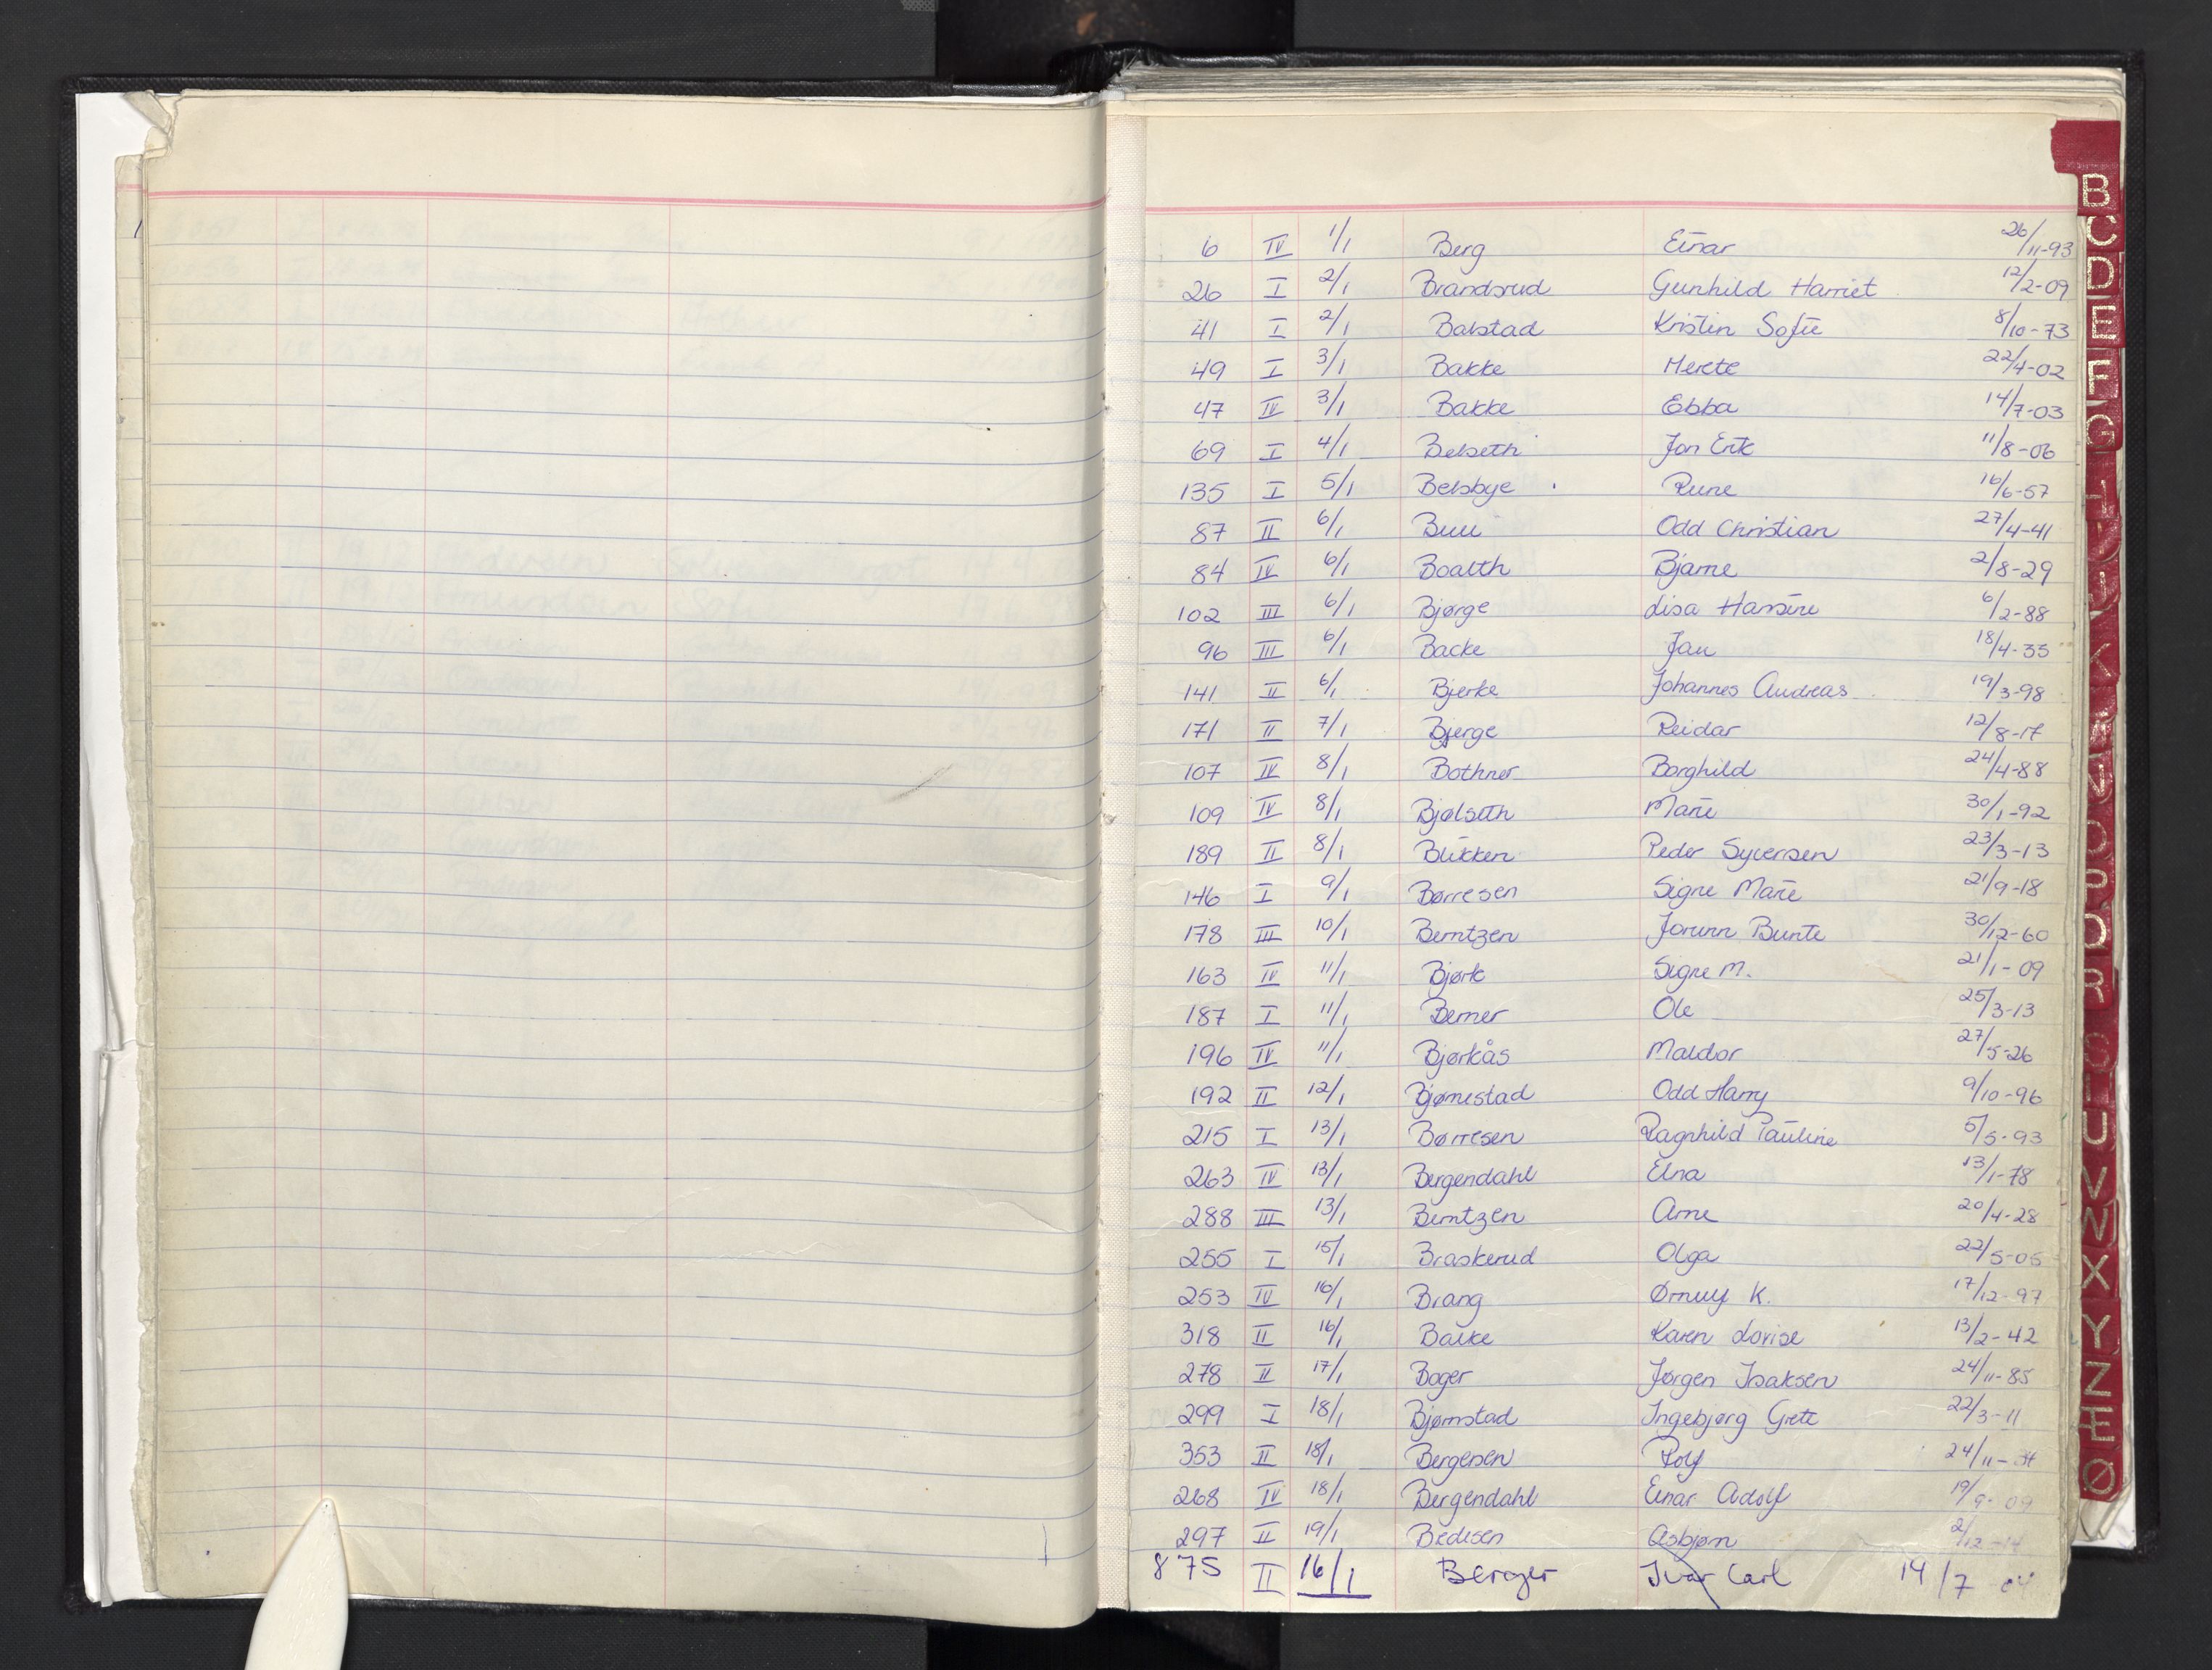 6 IV 1/1 Berg Einar 26/11-93
26 I 2/1 Brandsrud Gunhild Harriet 12/2-09
41 I 2/1 Balstad Kristin Sofie 8/10-73
49 I 3/1 Bakke Merete 22/4-02
47 IV 3/1 Bakke Ebba 14/7-03
69 I 4/1 Belseth Jan Erik 11/8-06
135 I 5/1 Belsbye Rune 16/6-57
87 II 6/1 Odd Christian 27/4-41
84 IV 6/1 Boalth Bjarne 2/8-29
102 III 6/1 Bjørge Lisa Hansine 6/2-88
96 III 6/1 Backe Jan 18/4-35
141 II 6/1 Bjerke Johannes Andreas 19/3-98
171 II 7/1 Bjerge Reidar 12/8-17
107 IV 8/1 Bothner Borghild 24/4-88
109 IV 8/1 Bjølseth Marie 30/1-92
189 II 8/1 Blikken Peder Syversen 23/3-13
146 I 9/1 Børresen Signe Marie 21/9-18
178 III 10/1 Berntzen Jorunn Bente 30/12-60
163 IV 11/1 Bjørk Signe M. 21/1-09
187 I 11/1 Berner Ole 25/3-13
196 IV 11/1 Bjørkås Maldor 27/5-26
192 II 12/1 Bjørnestad Odd Harry 9/10-96
215 I 13/1 Børresen Ragnhild Pauline 5/5-93
263 IV 13/1 Bergendahl Elna 13/1-78
288 III 13/1 Berntzen Arne 20/4-28
255 I 15/1 Braskerud Olga 22/5-05
253 IV 16/1 Brang K. 17/12-97
318 II 16/1 Bakke Karen Lovise 13/2-42
278 II 17/1 Boger Jørgen Isaksen 24/11-85
299 I 18/1 Bjørnstad Ingebjørg Grete 22/3-11
353 II 18/1 Bergersen Rolf 24/11-34
268 IV 18/1 Bergendahl Einar Adolf 19/9-09
297 II 19/1 Bedisen Asbjørn 2/12-14
875 II 16/1 Berger Ivar Carl 14/7 04
B
C
D
E
F
G
K
N
O
P
R
S
U
V
W
X
Y
Z
Æ
Ø